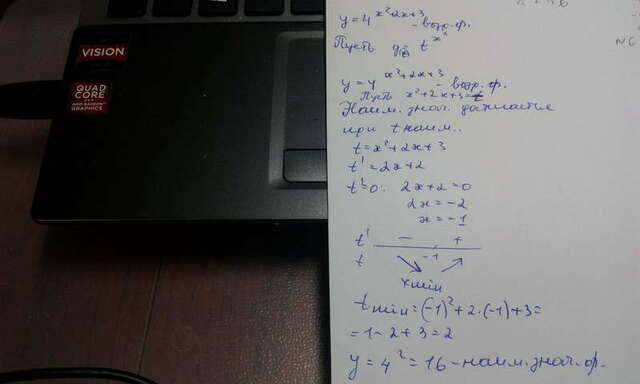 VISION
QUAD
CORE
AMD RADEON
GRAPHICS
y=4^x²+2x+3 - возр.ф.
Пусть
t
№6
y=4^x²+2x+3 - возр.ф.
Пусть x²+2x+3=t
Наим. знач. достигается
при t наим.
t=x²+2x+3
t'=2x+2
t'=0: 2x+2=0
2x=-2
x=-1
t' - +
t -1
xmin
tmin=(-1)²+2·(-1)+3=
=1-2+3=2
y=4²=16-наим.знач.ф.